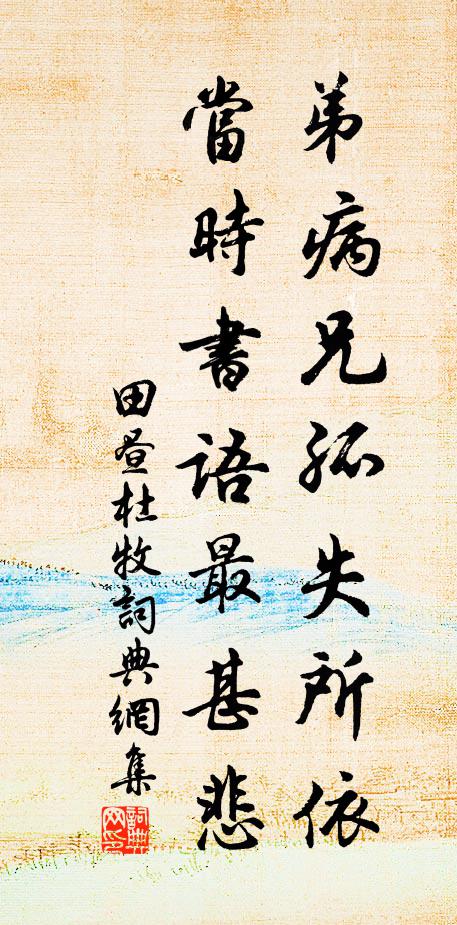 弟病兄孤失所依
當時書語最甚悲
田昼杜牧詞典網集
詞典網印